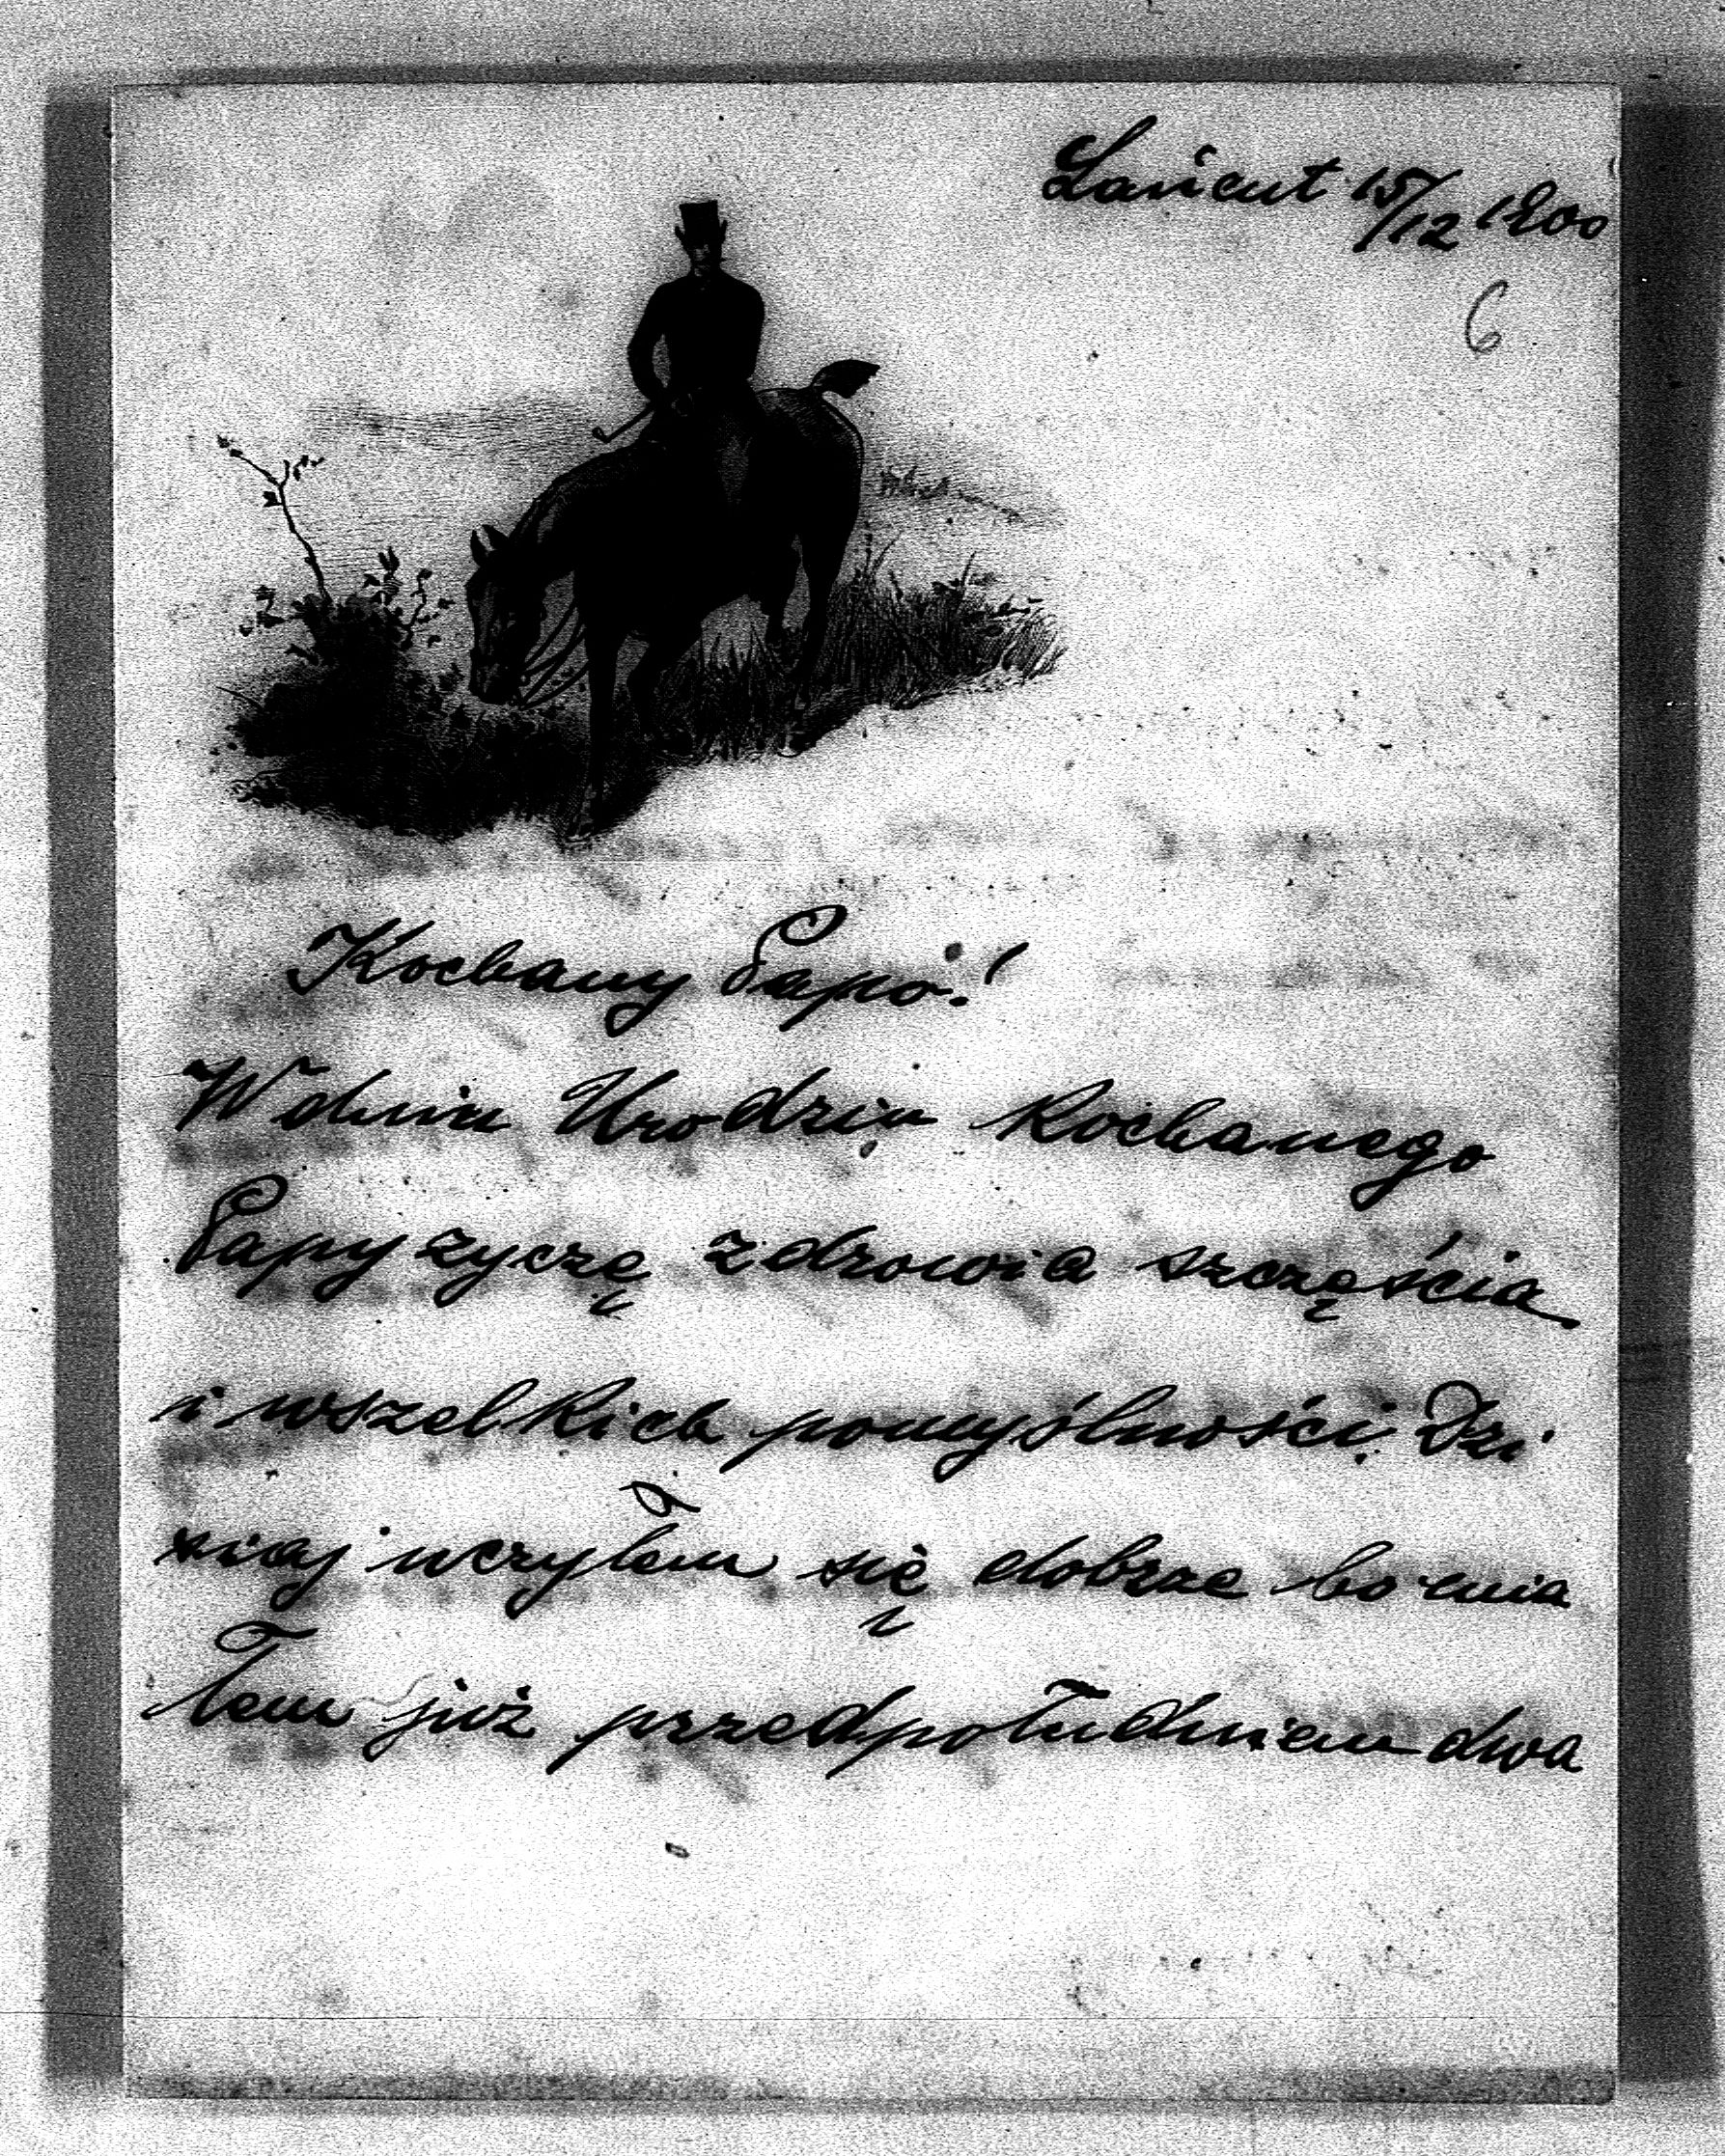 Łańcut 15/12 1900
6
Kochany Papo!
W dniu Urodzin kochanego
Papy zyczę zdrowia szczęścia
i wszelkich pomyślności. Dzi
siaj uczyłem się dobrze bo mia
łem już przedpołudniem dwa